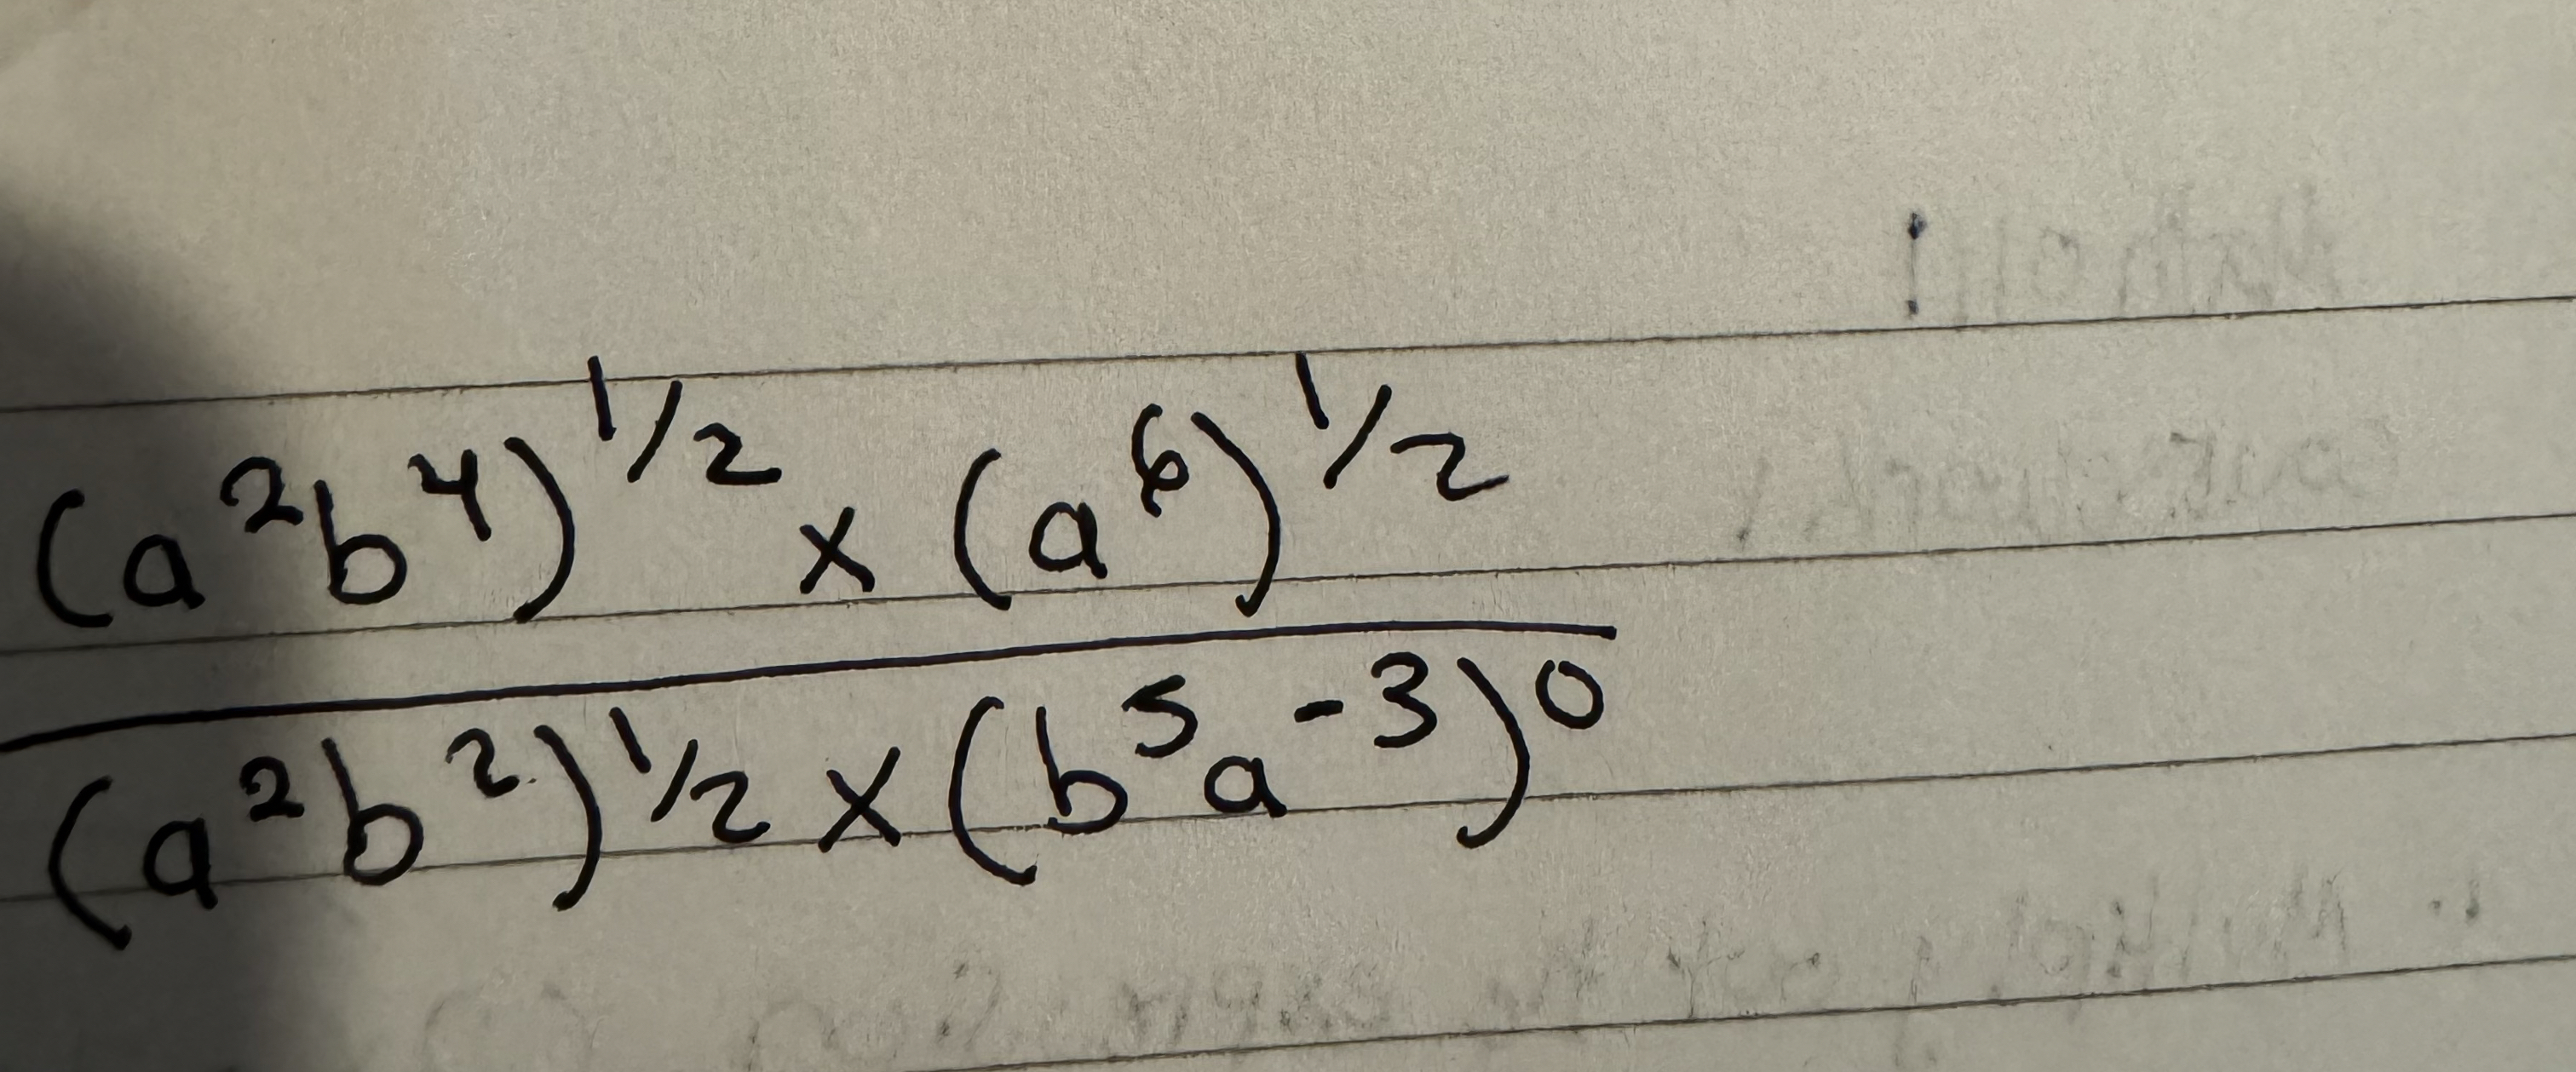 (a²b⁴)^1/2 × (a⁶)^1/2
(a²b²)^1/2 × (b⁵a⁻³)⁰